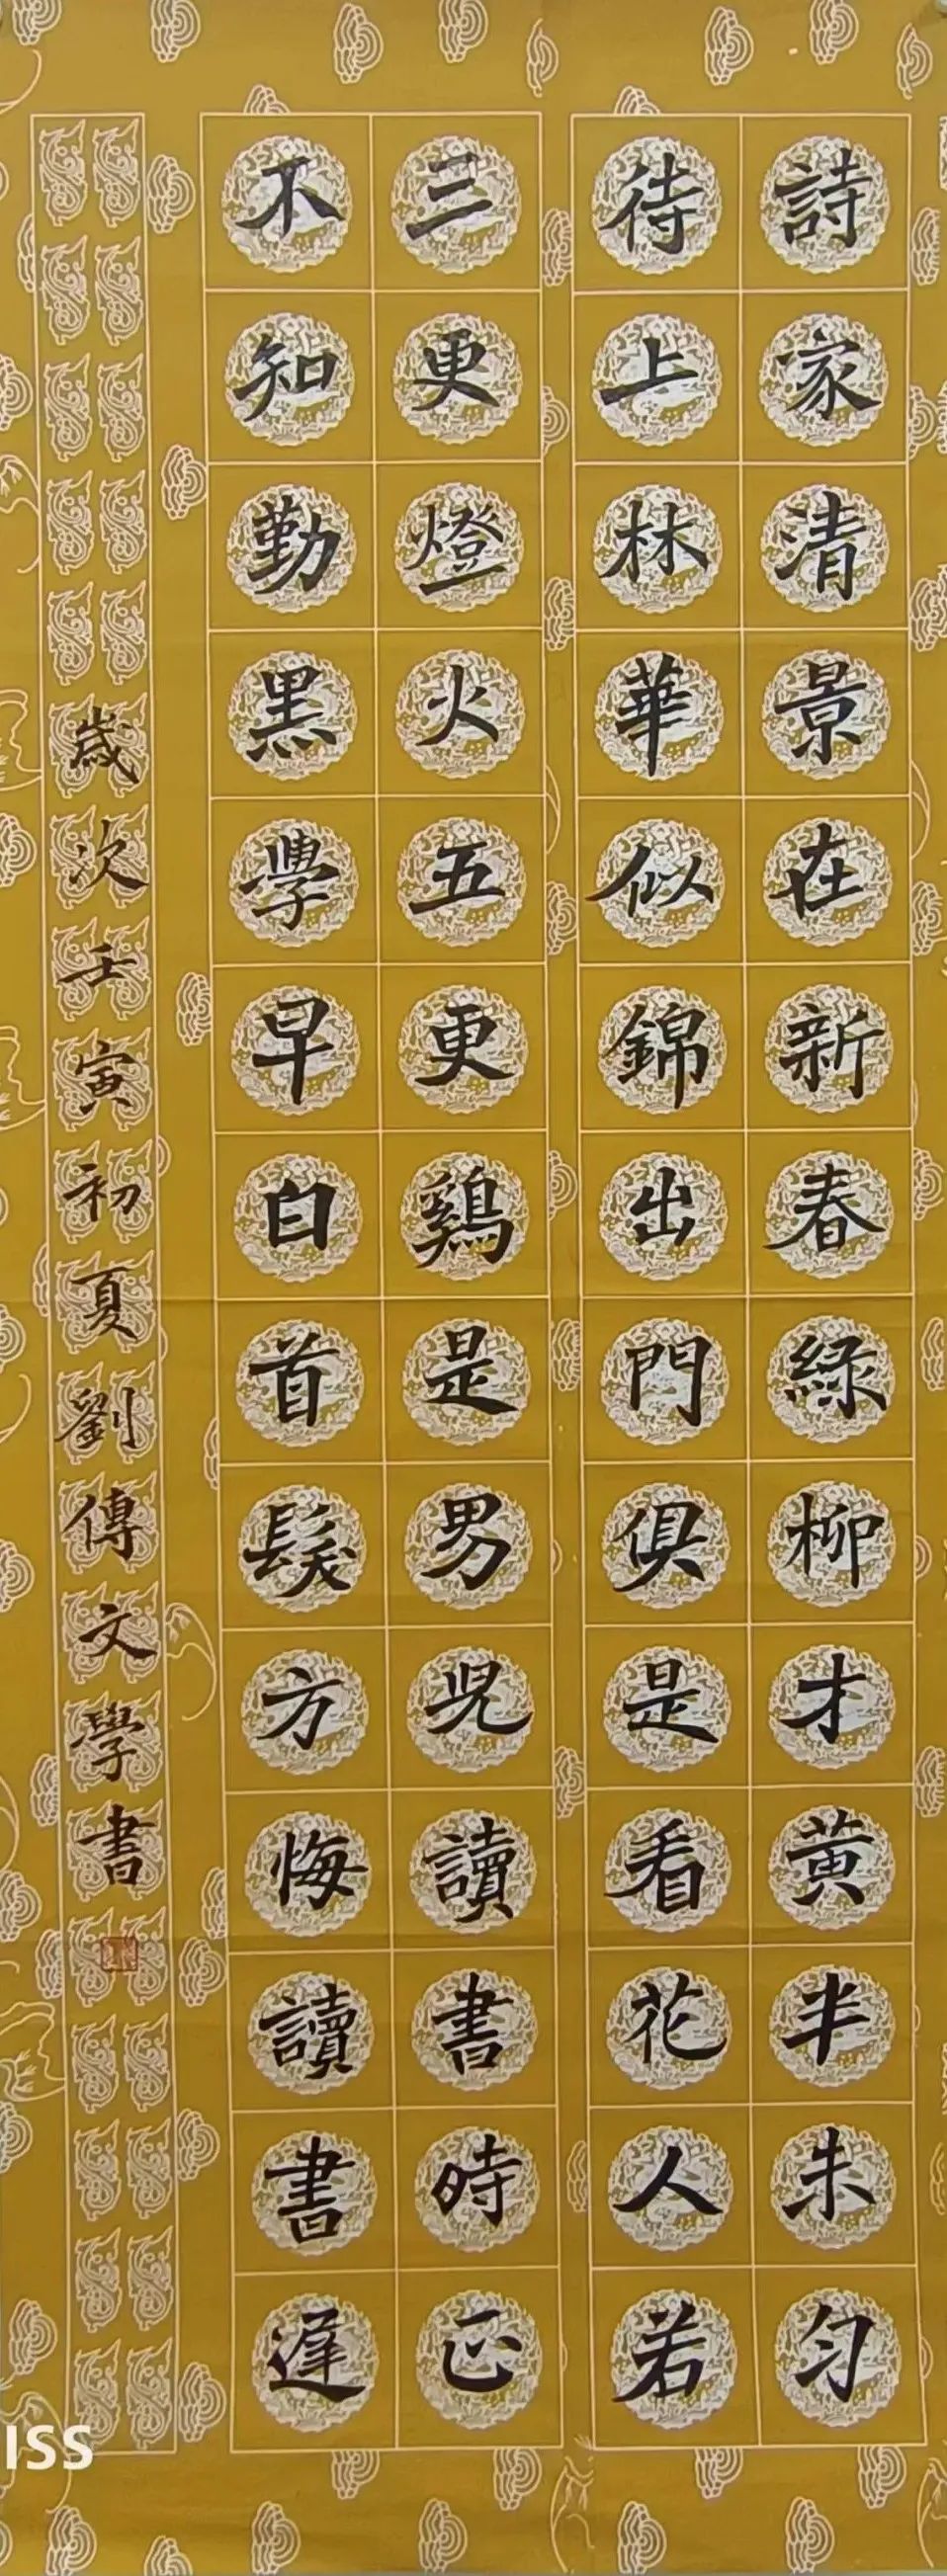 詩家清景在新春綠柳才黄半未匀
待上林華似錦出門俱是看花人若
三更燈火五更鷄是男児讀書時正
不知勤黑學早白首髮方悔讀書遲
歲次壬寅初夏劉傳文學書
ISS